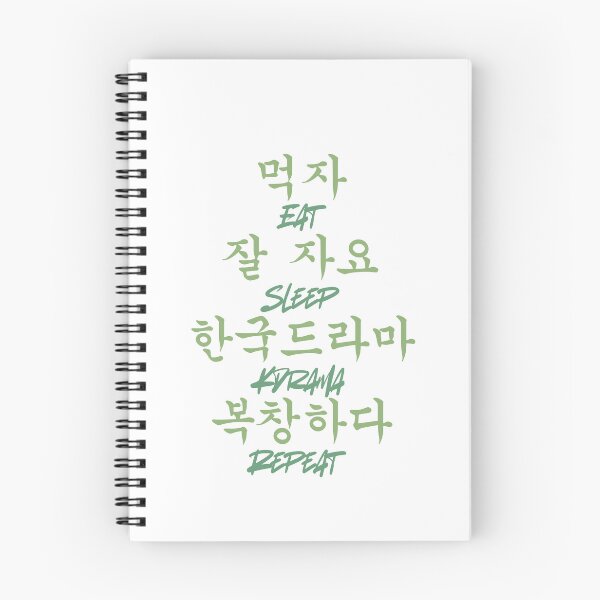 먹자
EAT
잘 자요
SLEEP
한국드라마
KDRAMA
복창하다
REPEAT